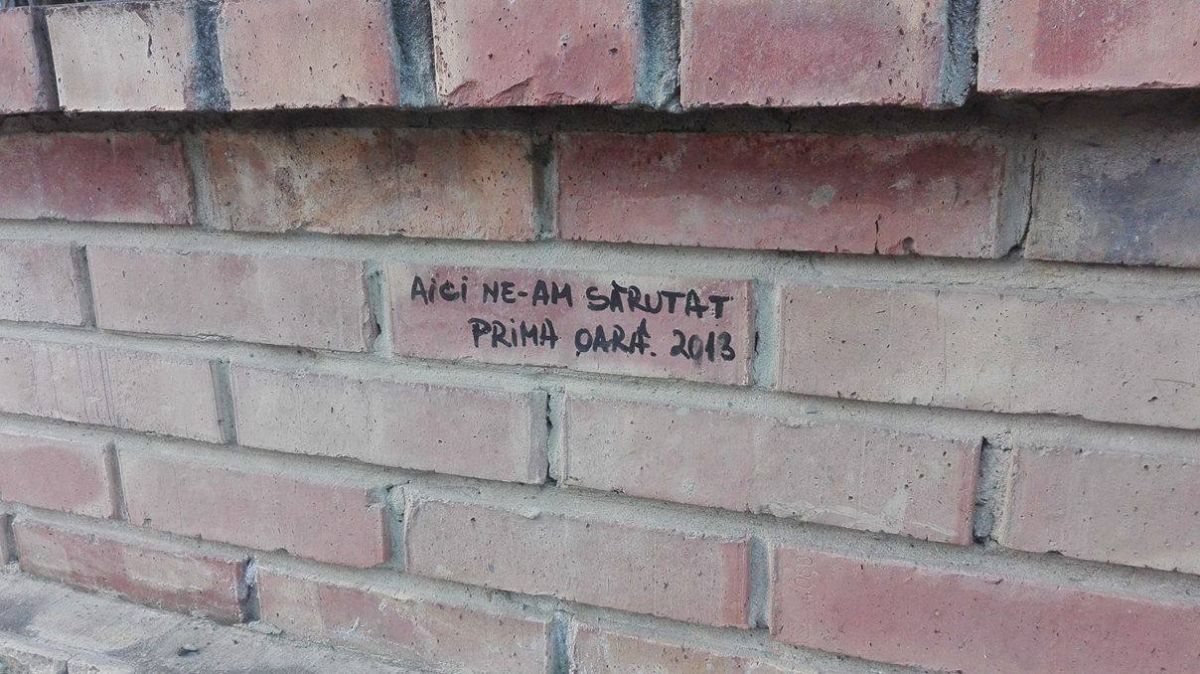 AICI NE-AM SĂRUTAT
PRIMA OARĂ. 2013